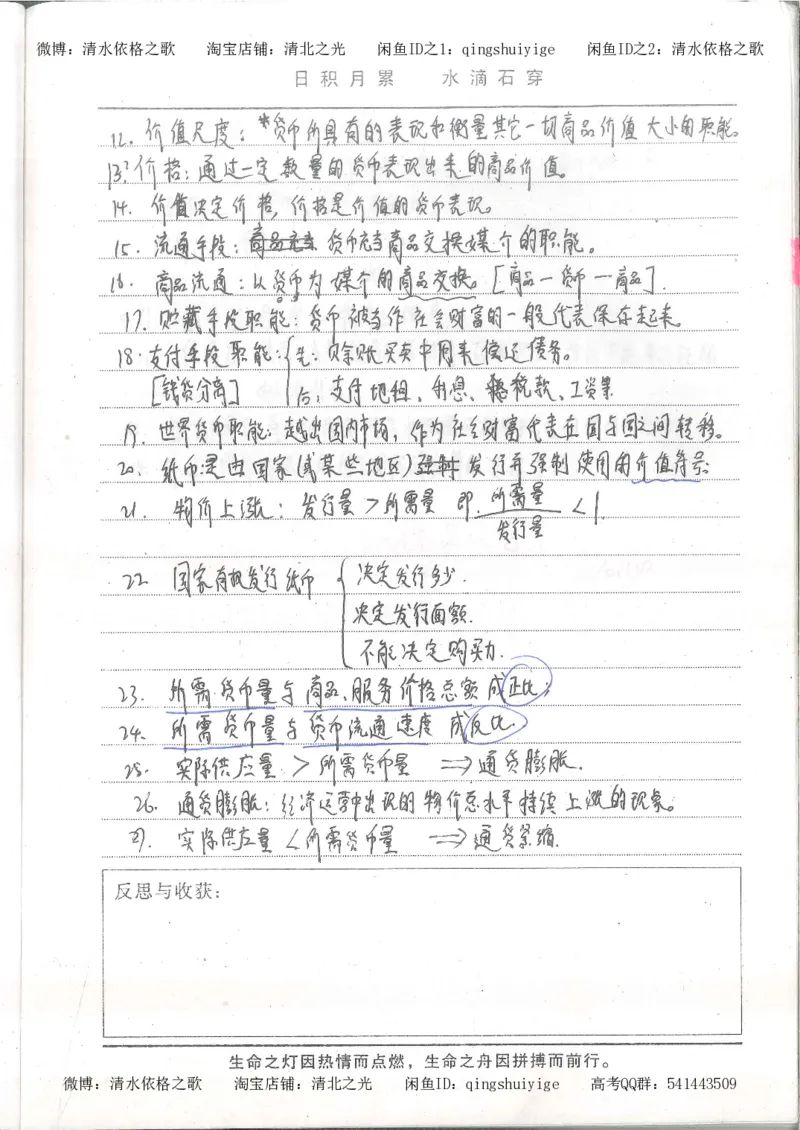 微博：清水依格之歌 淘宝店铺：清北之光 闲鱼ID之1：qingshuiyige 闲鱼ID之2：清水依格之歌
日积月累 水滴石穿
12. 价值尺度：*货币所具有的表现和衡量其它一切商品价值大小的职能。
13. 价格：通过一定数量的货币表现出来的商品价值。
14. 价值决定价格，价格是价值的货币表现。
15. 流通手段：货币充当商品交换媒介的职能。
16. 商品流通：以货币为媒介的商品交换。[商品—货币—商品].
17. 贮藏手段职能：货币被当作社会财富的一般代表保存起来。
18. 支付手段职能：先：赊账买卖中用来偿还债务。
[钱货分离] 后：支付地租、利息、税款、工资等
19. 世界货币职能：越出国内市场，作为社会财富代表在国与国之间转移。
20. 纸币：是由国家(或某些地区)发行并强制使用的价值符号
21. 物价上涨：发行量＞所需量 即 所需量
发行量 ＜1.
22. 国家有权发行纸币 决定发行多少.
决定发行面额.
不能决定购买力.
23. 所需货币量与商品、服务价格总额成正比；
24. 所需货币量与货币流通速度成反比.
25. 实际供应量 ＞所需货币量 ⇒通货膨胀.
26. 通货膨胀：经济运营中出现的物价总水平持续上涨的现象。
27. 实际供应量＜所需货币量 ⇒通货紧缩.
反思与收获：
生命之灯因热情而点燃，生命之舟因拼搏而前行。
微博：清水依格之歌 淘宝店铺：清北之光 闲鱼ID：qingshuiyige 高考QQ群：541443509